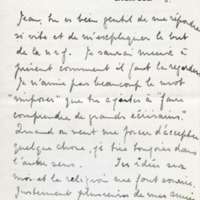 Jean, tu es bien gentil de me répondre
si vite et de m'expliquer le but
de la n.r.f. Je saurai mieux à
présent comment il faut la regarder.
Je n'aime pas beaucoup le mot
"imposer" que tu ajoutes à "faire
comprendre de grands écrivains".
Quand on veut me forcer d'accepter
quelque chose, je tire toujours dans
l'autre sens. Tes idées sur
moi et la religion me font sourire,
justement plusieurs de mes amis